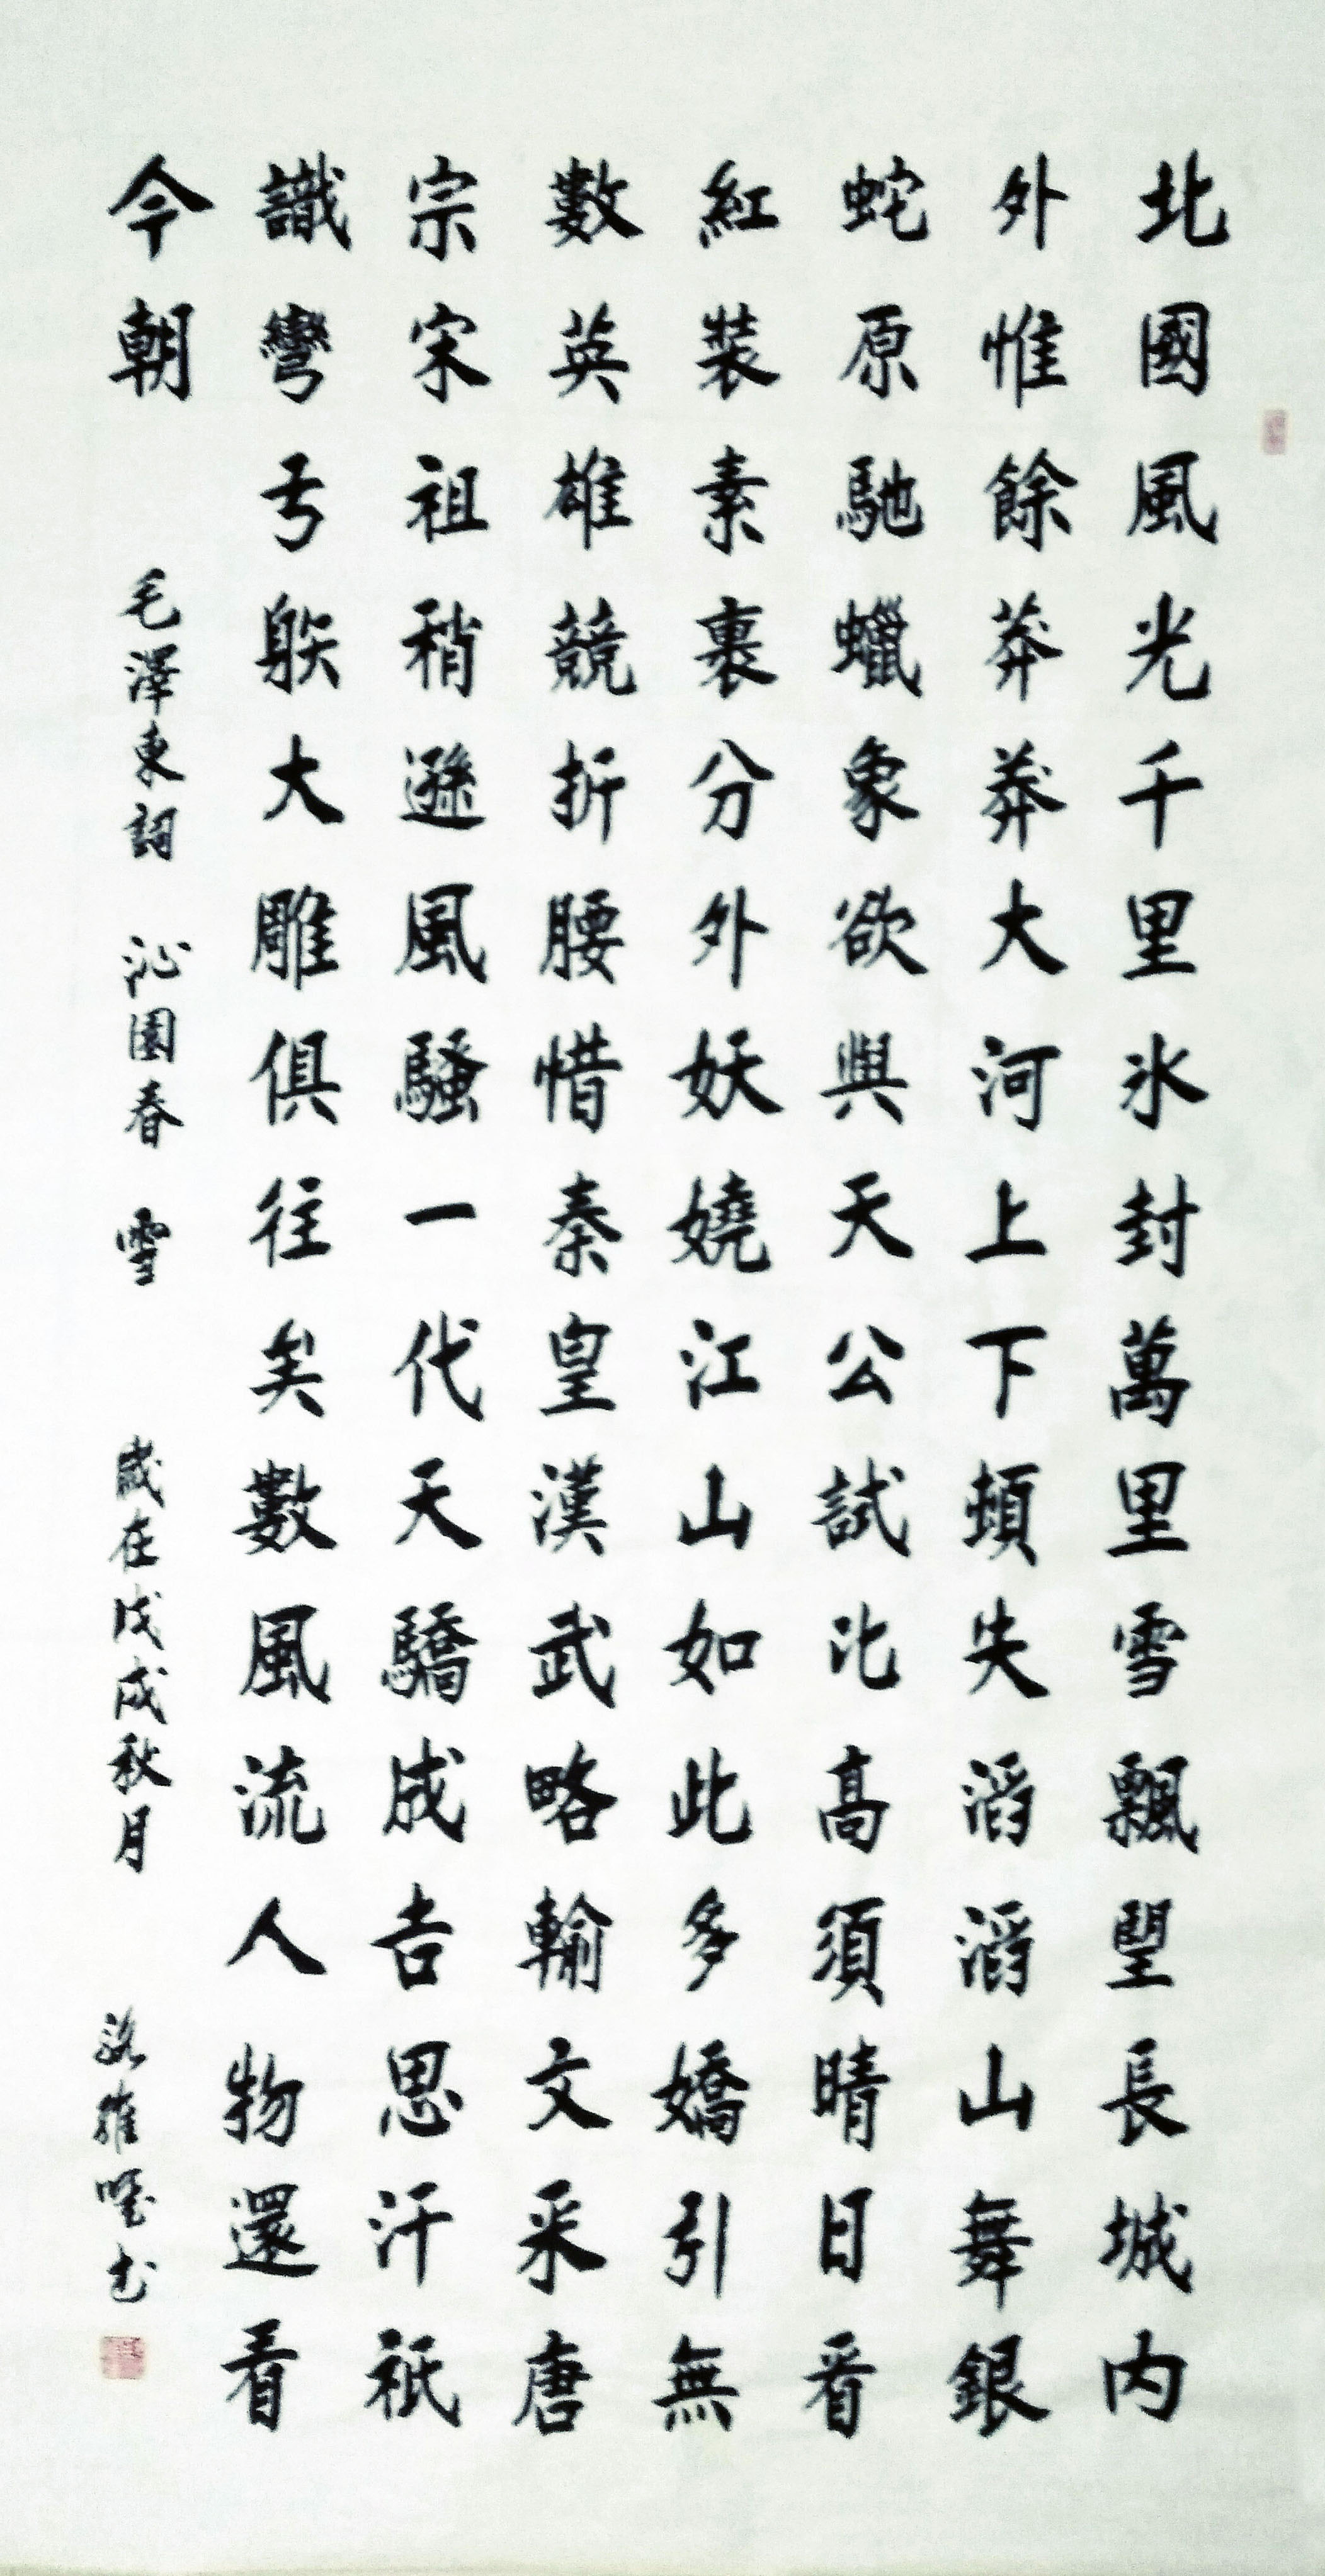 北國風光千里氷封萬里雪飄望長城内
外惟餘莽莽大河上下頓失滔滔山舞銀
蛇原馳蠟象欲與天公試比高須晴日看
紅裝素裹分外妖嬈江山如此多嬌引無
數英雄競折腰惜秦皇漢武略輸文采唐
宗宋祖稍遜風騷一代天驕成吉思汗祇
識彎弓䠶大雕俱往矣數風流人物還看
今朝
毛澤東詞 沁園春 雪 歲在戊戌秋月 書